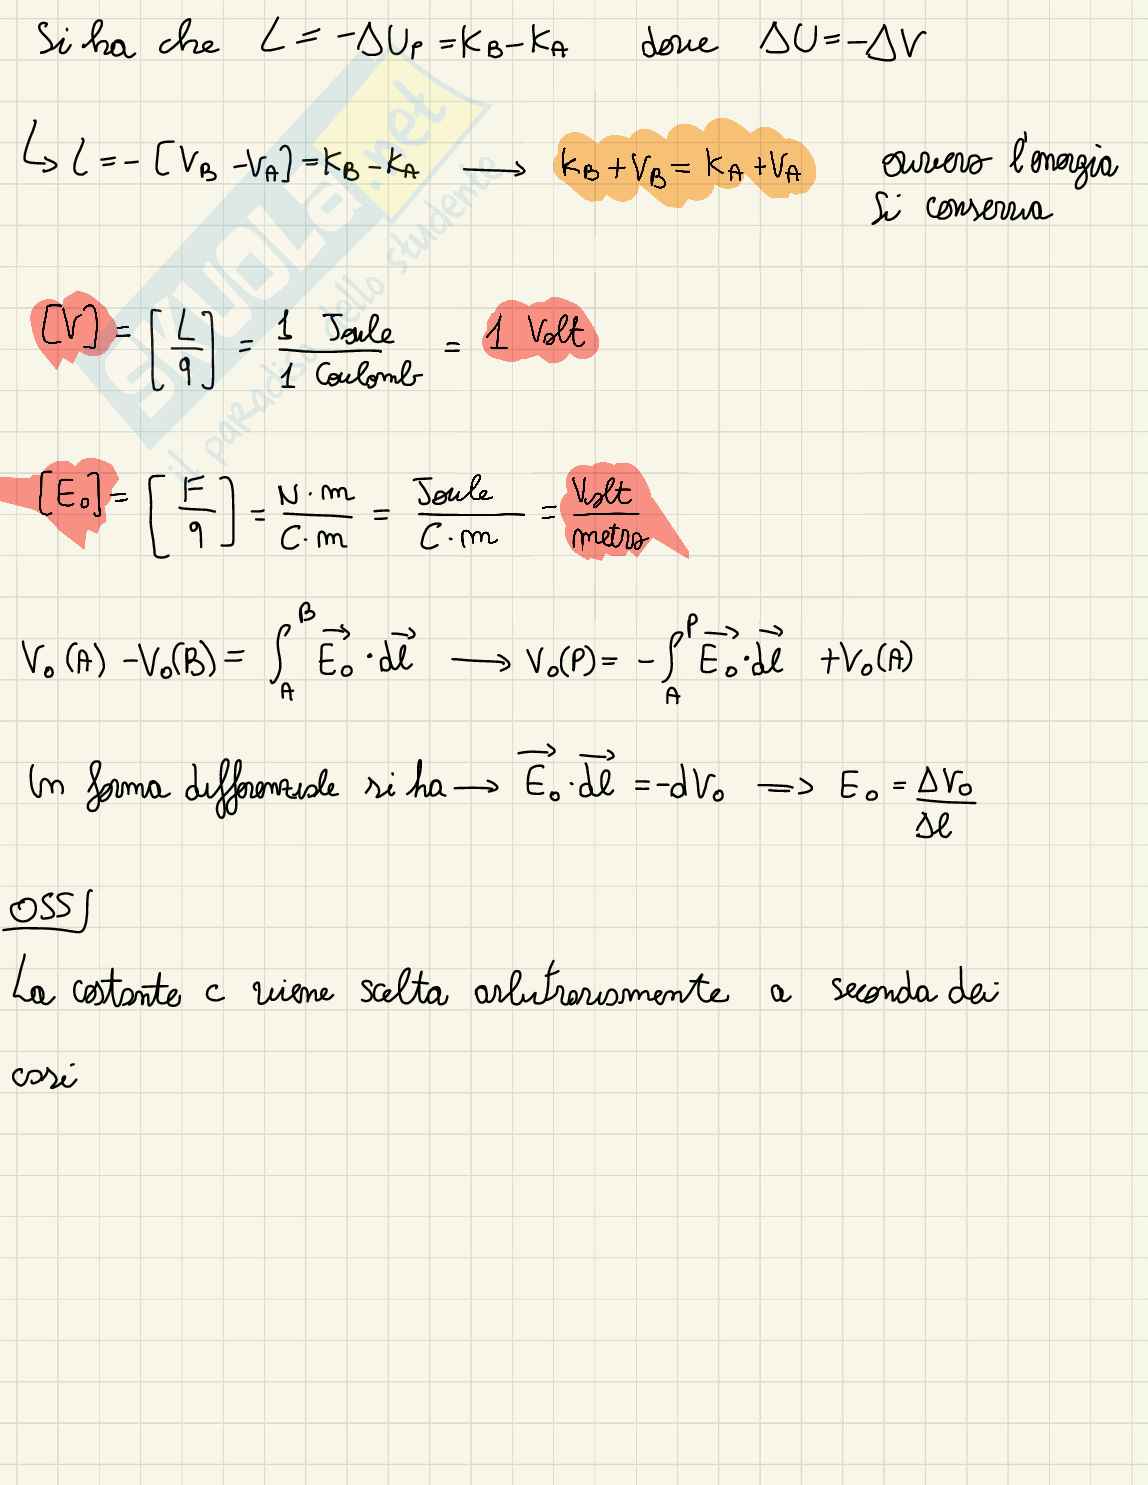 Si ha che L = -ΔU_P = K_B - K_A dove ΔU = -ΔV
↳ L = - [V_B - V_A] = K_B - K_A ⟶ K_B + V_B = K_A + V_A ovvero l'energia
si conserva
[V] = [L/q] = 1 Joule / 1 Coulomb = 1 Volt
[E₀] = [F/q] = N·m / C·m = Joule / C·m = Volt / metro
V₀(A) - V₀(B) = ∫_A^B E₀⃗ · dl⃗ ⟶ V₀(P) = - ∫_A^P E₀⃗ · dl⃗ + V₀(A)
In forma differenziale si ha ⟶ E₀⃗ · dl⃗ = -dV₀ ⟹ E₀ = ΔV₀ / Δl
OSS
La costante c viene scelta arbitrariamente a seconda dei
casi
SKUOLA.net
il paradiso dello studente